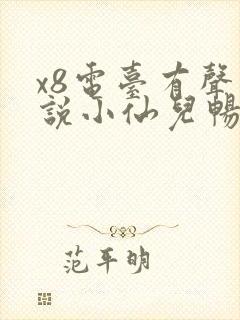 x8電臺有聲
說小仙兒暢
范平明